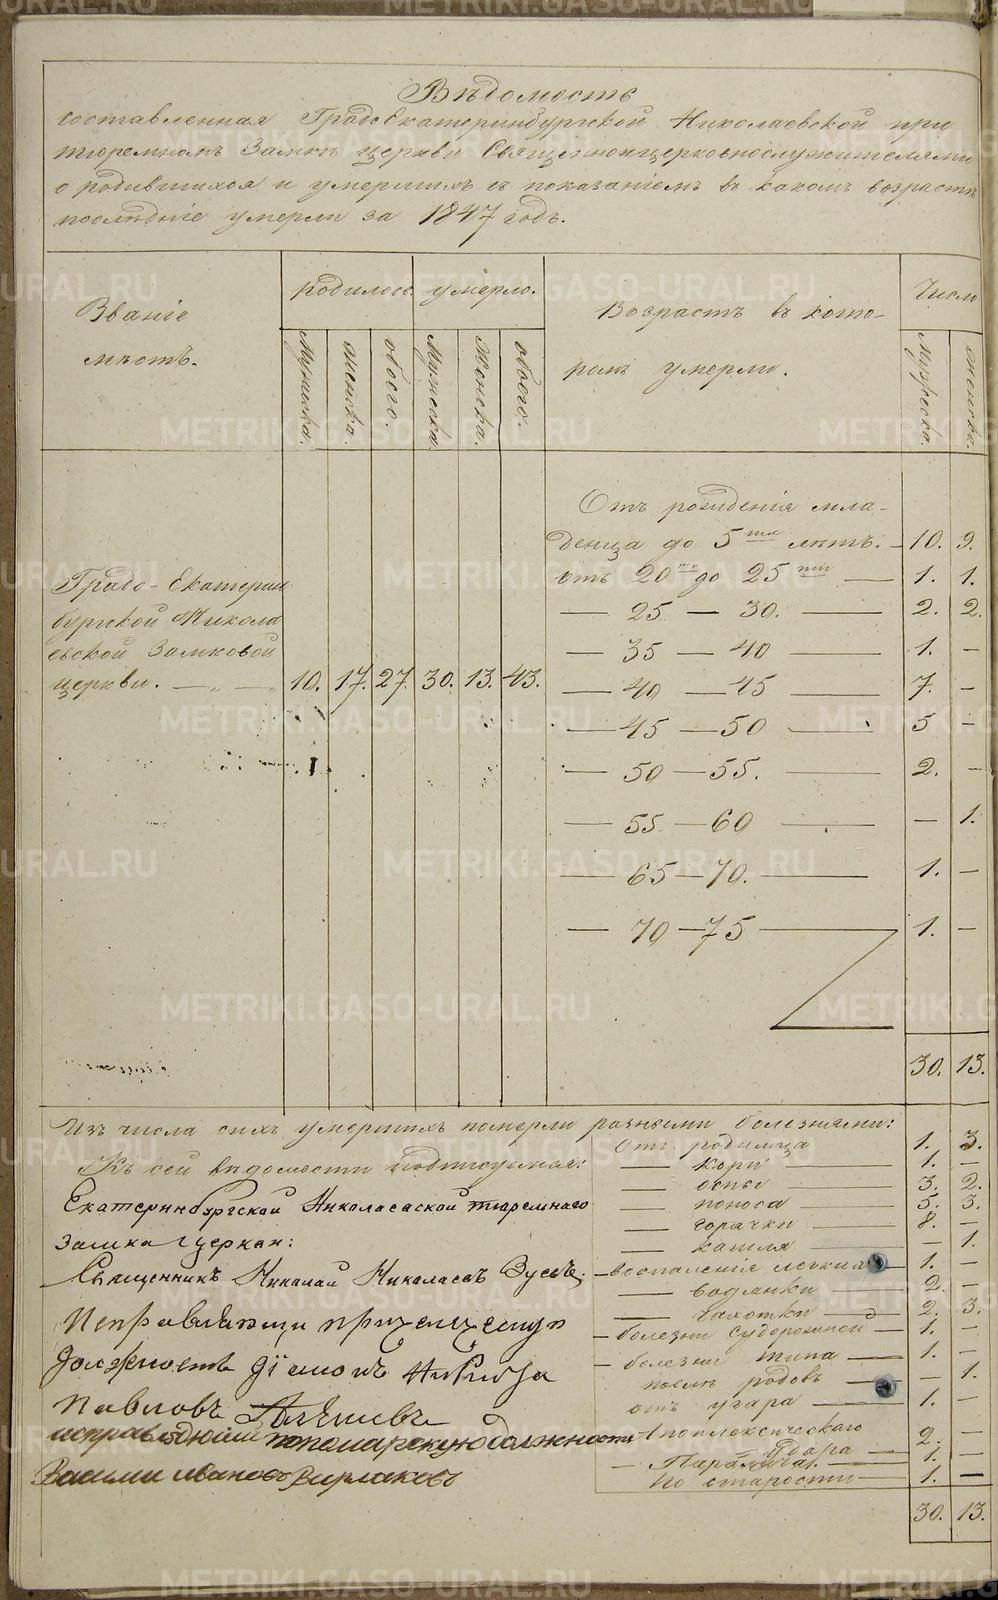 Вѣдомость
составленная Градо Екатеринбургской Николаевской при
тюремномъ Замкѣ церкви Священноицерковнослужителями
о родившихся и умершихъ съ показаніемъ въ какомъ возрастѣ
послѣдніе умерли за 1847 годъ.
Званіе
мѣстъ.
родилось. умерло.
Возрастъ въ кото-
ромъ умерли.
Число
Мужеска. женска. обоего. Мужеска. Женска. обоего.
Мужеска. Женска.
Отъ рожденія мла-
денца до 5 ти лѣтъ. — 10. 9.
отъ 20 ти до 25 ти — 1. 1.
— 25 — 30. — 2. 2.
— 35 — 40 — 1. —
— 40 — 45 — 7. —
— 45 — 50 — 5 —
— 50 — 55. — 2. —
— 55 — 60 — — 1.
— 65 — 70. — 1. —
— 70 — 75 — 1. —
30. 13.
Градо-Екатерин
бургской Никола
евской Замковой
церкви. — „ — 10. 17. 27. 30. 13. 43.
Изъ числа сихъ умершихъ померли разными болезнями:
Отъ родимца 1. 3.
— кори — 1. —
— оспы — 3. 2.
— поноса — 5. 3.
— горячки — 8. —
— кашля — — 1.
— воспаленія легкихъ 1. —
— водянки — 2. —
— чахотки — 2. 3.
— болезни судорожной — 1. —
— болезни типа — 1. —
послѣ родовъ — — 1.
отъ угара — 1. —
Апоплексическаго
удара 2. —
— Паралича — 1. —
по старости — 1. —
30. 13.
Къ сей вѣдомости подписуемся:
Екатеринбургской Николаевской тюремнаго
Замка Церкви:
Священникъ Николай Николаевъ
Исправляющій
должность Діаконъ Никита
Павловъ
исправляющій пономарскую должность
Василій Ивановъ